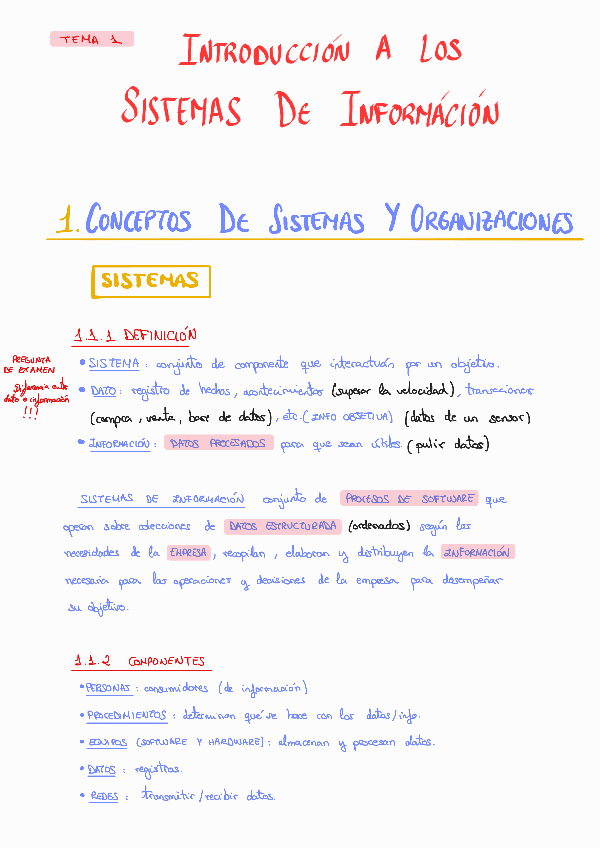 TEMA 1
INTRODUCCIÓN A LOS
SISTEMAS DE INFORMÁCIÓN
1. CONCEPTOS DE SISTEMAS Y ORGANIZACIONES
SISTEMAS
1.1.1 DEFINICIÓN
• SISTEMA: conjunto de componente que interactuán por un objetivo.
PREGUNTA
DE EXAMEN
Diferencia entre
dato e información
!!!
• DATO: registro de hechos, acontecimientos (superar la velocidad), transacciones
(compra, venta, base de datos), etc. (INFO OBJETIVA) (datos de un sensor)
• INFORMACIÓN: DATOS PROCESADOS para que sean útiles. (pulir datos)
SISTEMAS DE INFORMACIÓN conjunto de PROCESOS DE SOFTWARE que
operan sobre colecciones de DATOS ESTRUCTURADA (ordenados) según las
necesidades de la EMPRESA, recopilan, elaboran y distribuyen la INFORMACIÓN
necesaria para las operaciones y decisiones de la empresa para desempeñar
su objetivo.
1.1.2 COMPONENTES
• PERSONAS: consumidores (de información)
• PROCEDIMIENTOS: determinan qué se hace con los datos/info.
• EQUIPOS (SOFTWARE Y HARDWARE): almacenan y procesan datos.
• DATOS: registros.
• REDES: transmitir/recibir datos.